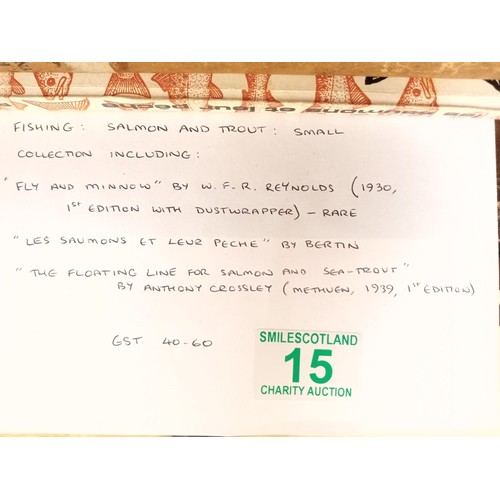 FISHING: SALMON AND TROUT: SMALL
COLLECTION INCLUDING:
"FLY AND MINNOW" BY W. F. R. REYNOLDS (1930,
1st EDITION WITH DUSTWRAPPER) - RARE
"LES SAUMONS ET LEUR PECHE" BY BERTIN
"THE FLOATING LINE FOR SALMON AND SEA-TROUT"
BY ANTHONY CROSSLEY (METHUEN, 1939, 1st EDITION)
GST 40-60
SMILESCOTLAND
15
CHARITY AUCTION